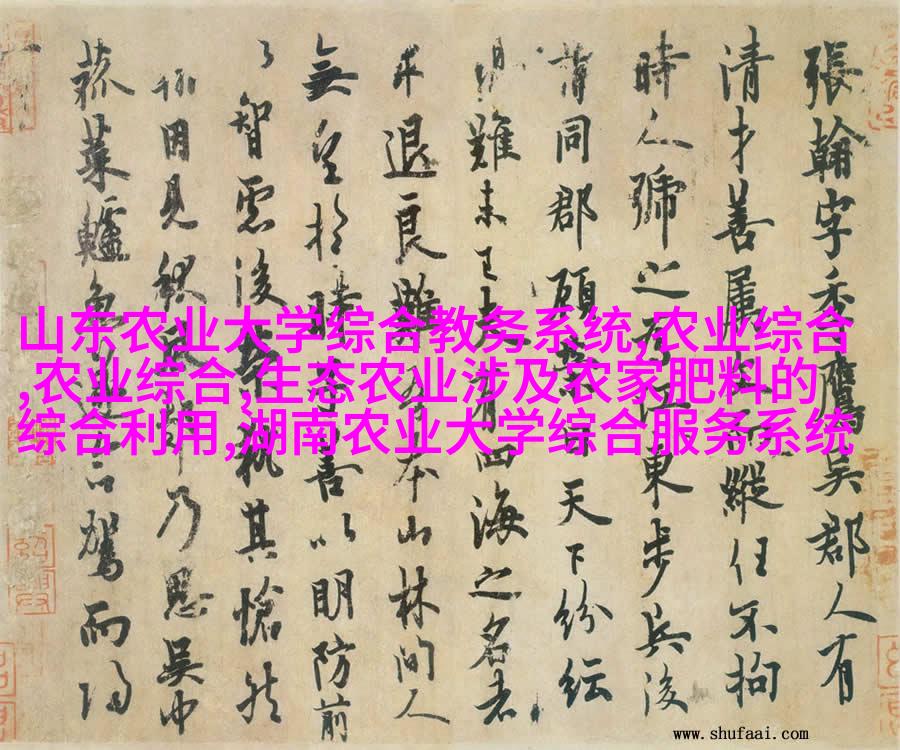 張翰字季鷹吳郡人有
清才善屬文而縱任不拘
時人號之為江東步兵後
同郡顧榮曰天下紛紜
難未已夫有四海之名者
求退良難吾本山林間人
無望於時子善以明防前
以智慮後榮執其愴然
翰因見秋風起乃思吳中
菰菜鱸魚遂命駕而歸
山东农业大学综合教务系统,农业综合
,农业综合,生态农业涉及农家肥料的
综合利用,湖南农业大学综合服务系统
www.shufaai.com